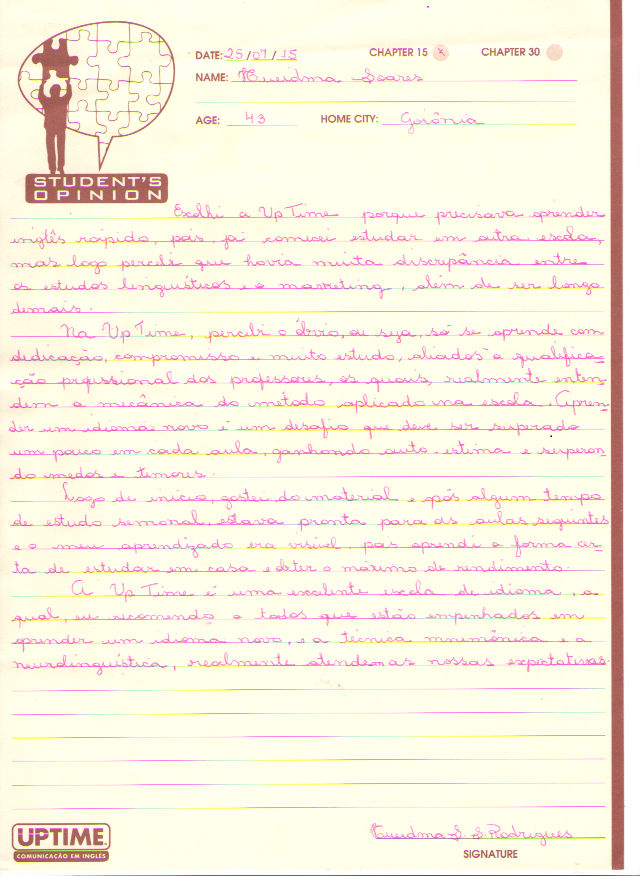 DATE: 25/07/15 CHAPTER 15 x CHAPTER 30
NAME: Kueidma Soares
AGE: 43 HOME CITY: Goiânia
STUDENT'S
OPINION
Escolhi a Up Time porque precisava aprender
inglês rápido, pois, já comecei estudar em outra escola,
mas logo percebi que havia muita discrepância entre
os estudos linguísticos e o marketing, além de ser longo
demais.
Na Up Time, percebi o óbvio, ou seja, só se aprende com
dedicação, compromisso e muito estudo, aliados a qualifica-
ção profissional dos professores, os quais, realmente enten-
dem a mecânica do método aplicado na escola. Apren-
der um idioma novo é um desafio que deve ser superado
um pouco em cada aula, ganhando auto-estima e superan-
do medos e temores.
Logo de início, gostei do material e após algum tempo
de estudo semanal estava pronta para as aulas seguintes
e o meu aprendizado era visível pois aprendi a forma cer-
ta de estudar em casa e obter o máximo de rendimento.
A Up Time é uma excelente escola de idioma, a
qual, eu recomendo a todos que estão empenhados em
aprender um idioma novo, e a técnica mnemônica e a
neurolinguística, realmente atendem as nossas expectativas.
UPTIME
COMUNICAÇÃO EM INGLÊS
Kueidma S. S. Rodrigues
SIGNATURE